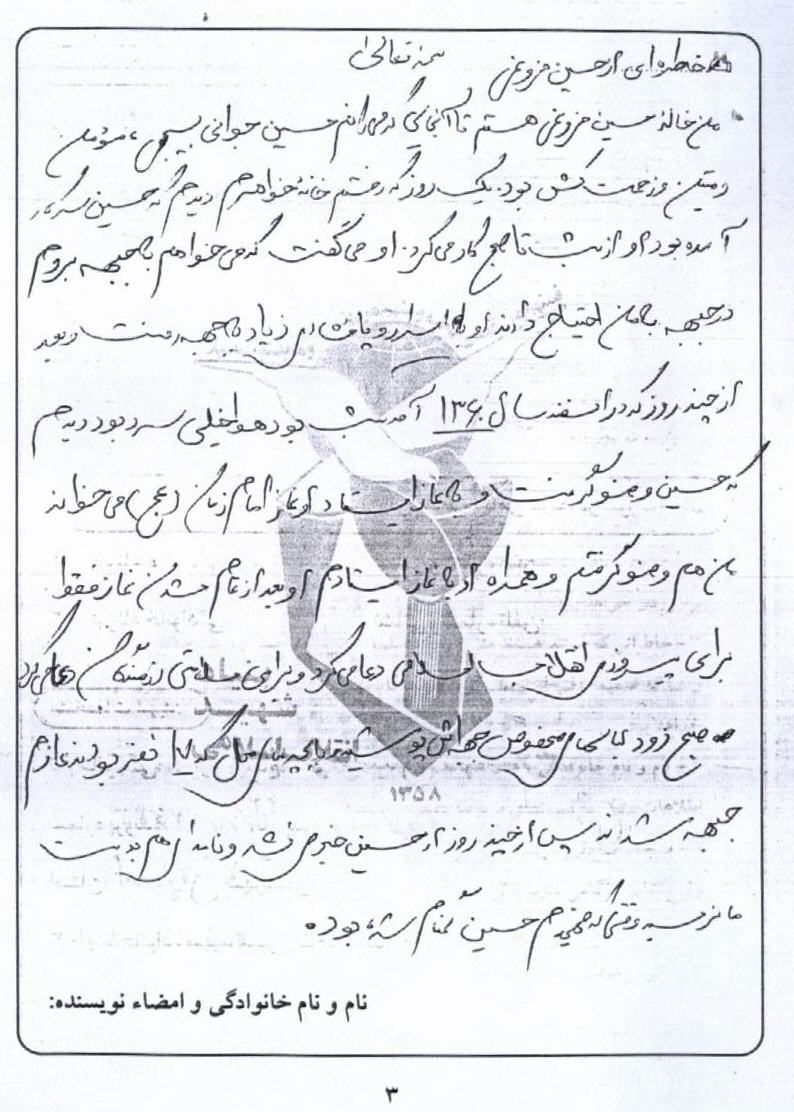 بسمه تعالی
خاطره‌ای از حسین مزوغی
من خاله حسین مزوغی هستم تا آنجایی که می‌دانم حسین جوانی بسیجی، مؤمن
و متین و زحمت کش بود. یک روز که رفتم خانه خواهرم دیدم که حسین سر کار
آمده بود او از شب تا صبح کار می‌کرد. او می‌گفت که می‌خواهم به جبهه بروم
در جبهه به مان احتیاج دارند او با اسرار و پافشاری زیاد به جبهه رفت و بعد
از چند روز که در اسفند سال ۱۳۶۰ آمد شب بود هوا خیلی سرد بود دیدم
که حسین وضو گرفت و به نماز ایستاد او نماز امام زمان (عج) می‌خواند
من هم وضو گرفتم و همراه او به نماز ایستادم او بعد از تمام شدن نماز فقط
برای پیروزی انقلاب اسلامی دعا می‌کرد و برای سلامتی رزمندگان دعا می‌کرد
صبح زود لباسهای مخصوص جبهه‌اش پوشید با بچه‌های محل که ۱۷ نفر بودند عازم
جبهه شدند پس از چند روز از حسین خبری نشد و نامه‌ای هم بدست
ما نرسید وقتی که فهمیدم حسین گمنام شده بود.
۱۳۵۸
نام و نام خانوادگی و امضاء نویسنده:
۳